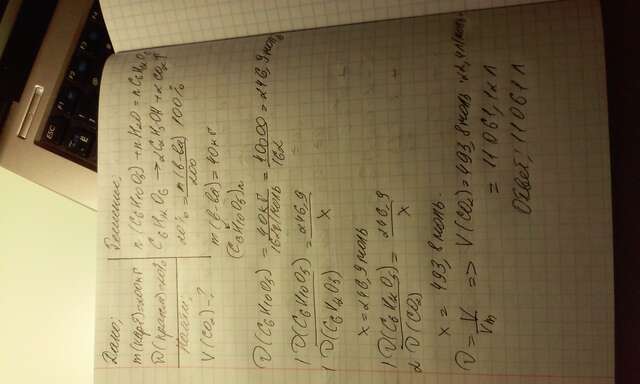 ESC
Дано:
m(карт)=200кг
ω(крахм)=20%
Найти:
V(CO2)-?
Решение:
n(C6H10O5)+nH2O=nC6H12O6
C6H12O6→2C2H5OH+2CO2↑
20%=m(в-ва)/200 100%
m(в-ва)=40кг
(C6H10O5)n
ν(C6H10O5)=40кг/162г/моль=40000/162=246,9моль
1 ν(C6H10O5)/1 ν(C6H12O6)=246,9/x
x=246,9моль
1 ν(C6H12O6)/2 ν(CO2)=246,9/x
x=493,8моль.
ν=V/Vm => V(CO2)=493,8моль·22,4л/моль=
=11061,12л
Ответ: 11061л